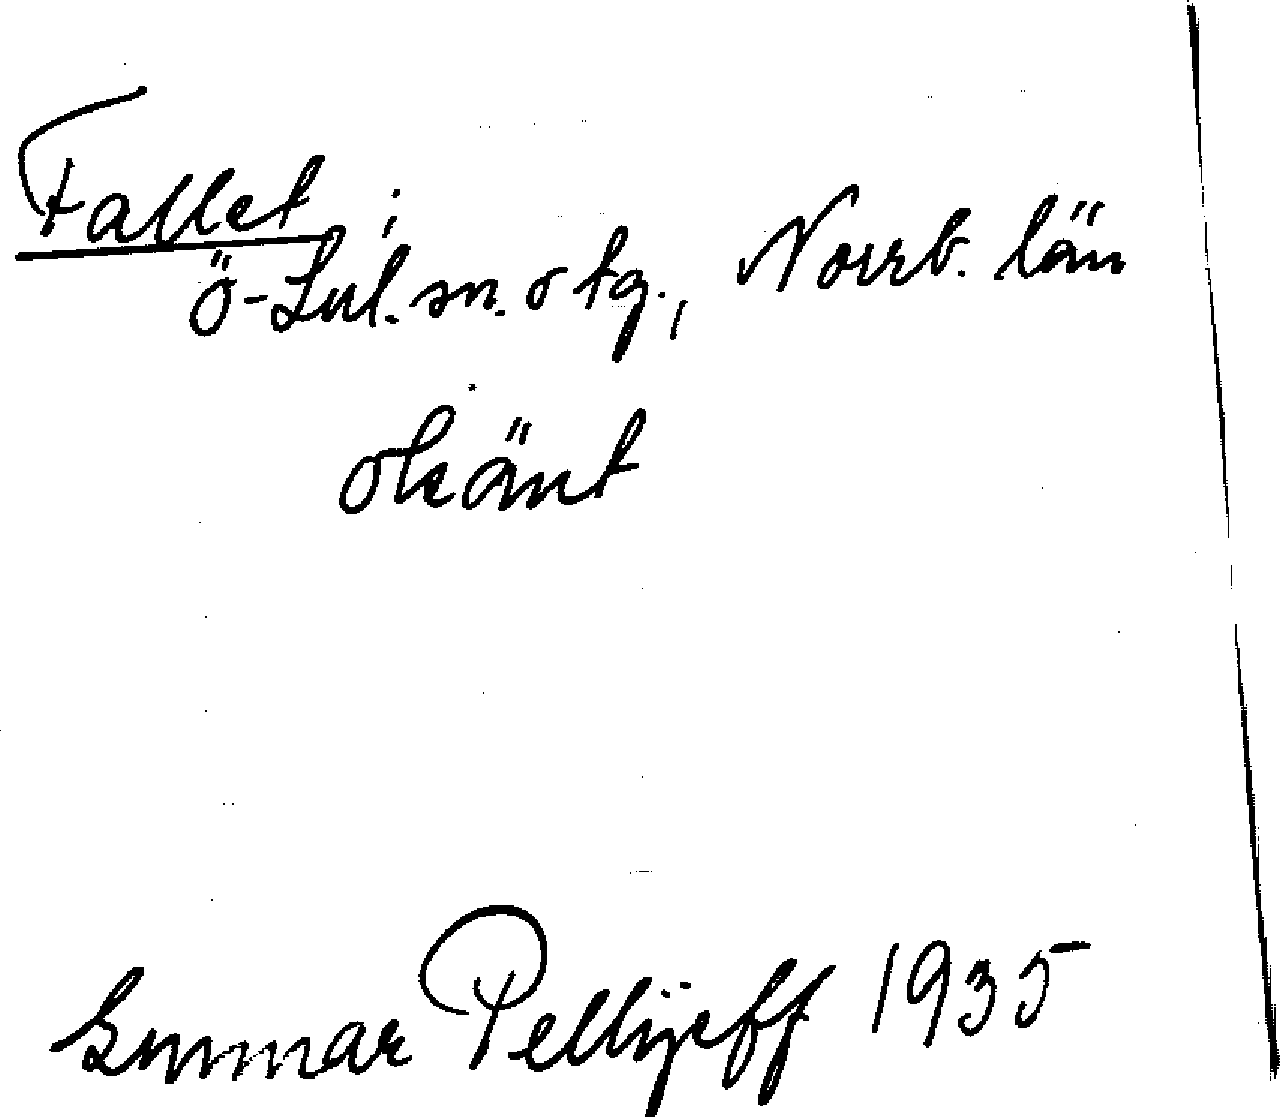 Fallet;
Ö-Lul. sn. o tg., Norrb. län
okänt
Gunnar Pellijeff 1935